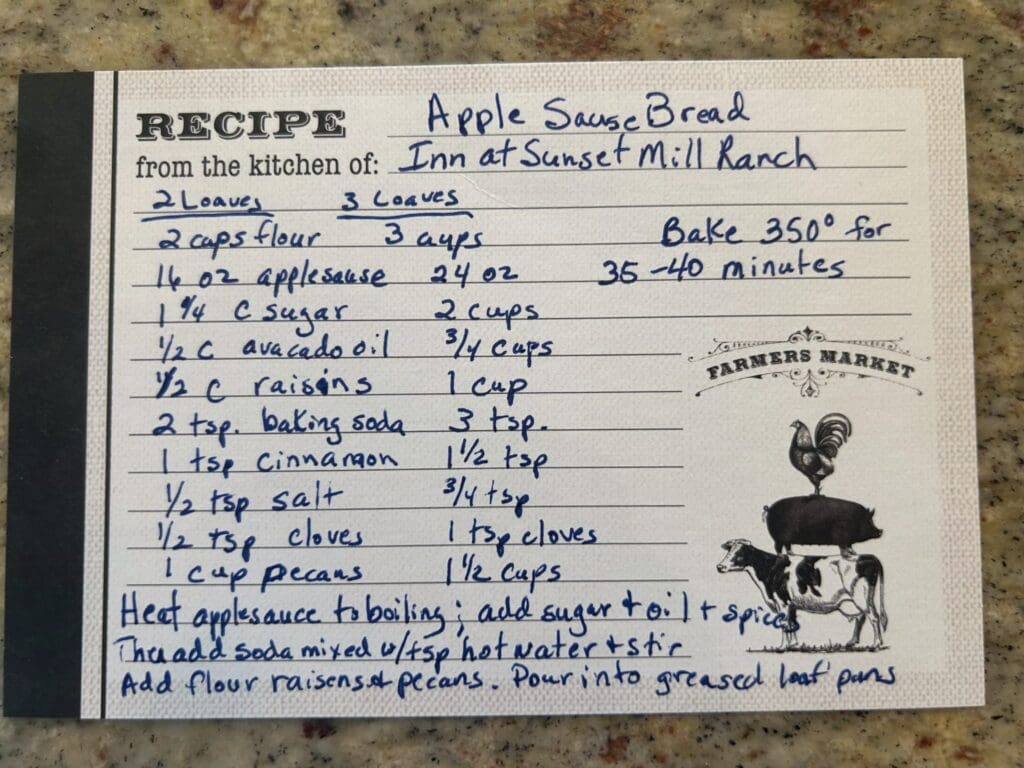 RECIPE Apple Sause Bread
from the kitchen of: Inn at Sunset Mill Ranch
2 Loaves 3 Loaves
2 cups flour 3 cups
Bake 350° for
16 oz applesause 24 oz
35-40 minutes
1 1/4 C sugar 2 cups
1/2 C avacado oil 3/4 cups
FARMERS MARKET
1/2 C raisins 1 cup
2 tsp. baking soda 3 tsp.
1 tsp cinnamon 1 1/2 tsp
1/2 tsp salt 3/4 tsp
1/2 tsp cloves 1 tsp cloves
1 cup pecans 1 1/2 cups
Heat applesauce to boiling; add sugar + oil + spices
Then add soda mixed w/tsp hot water + stir
Add flour raisens + pecans. Pour into greased loaf pans